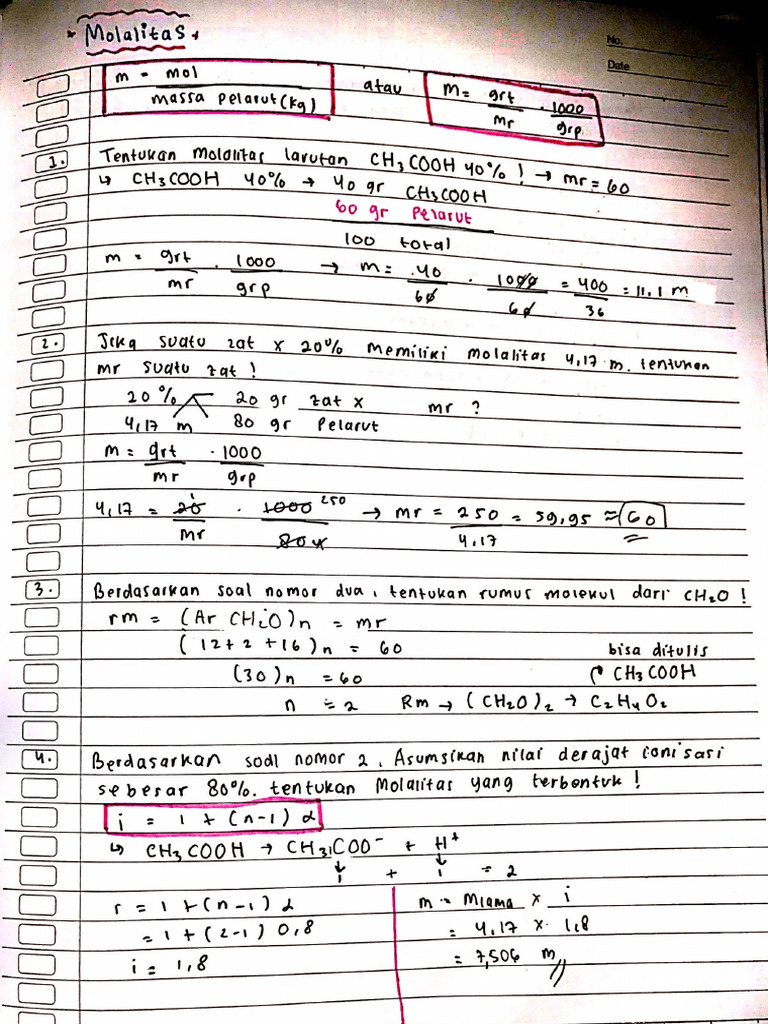 * Molalitas *
No.
Date
m = mol / massa pelarut (kg) atau m = grt / mr . 1000 / grp
1. Tentukan molalitas larutan CH3COOH 40% ! → mr = 60
↳ CH3COOH 40% → 40 gr CH3COOH
60 gr Pelarut
100 total
m = grt / mr . 1000 / grp → m = 40 / 60 . 1000 / 60 = 400 / 36 = 11,1 m
2. Jika suatu zat x 20% memiliki molalitas 4,17 m. tentukan
mr suatu zat !
20% 20 gr zat x mr ?
4,17 m 80 gr Pelarut
m = grt / mr . 1000 / grp
4,17 = 20 / mr . 1000 250 / 80 4 → mr = 250 / 4,17 = 59,95 ≈ 60
3. Berdasarkan soal nomor dua, tentukan rumus molekul dari CH2O !
rm = (Ar CH2O)n = mr
(12+2+16)n = 60
bisa ditulis
(30)n = 60
CH3COOH
n = 2 Rm → (CH2O)2 → C2H4O2
4. Berdasarkan soal nomor 2, Asumsikan nilai derajat ionisasi
sebesar 80%. tentukan Molalitas yang terbentuk !
i = 1 + (n-1) α
↳ CH3COOH → CH3COO⁻ + H⁺
1 + 1 = 2
i = 1 + (n-1) α
= 1 + (2-1) 0,8
i = 1,8
m = mlama x i
= 4,17 x 1,8
= 7,506 m //